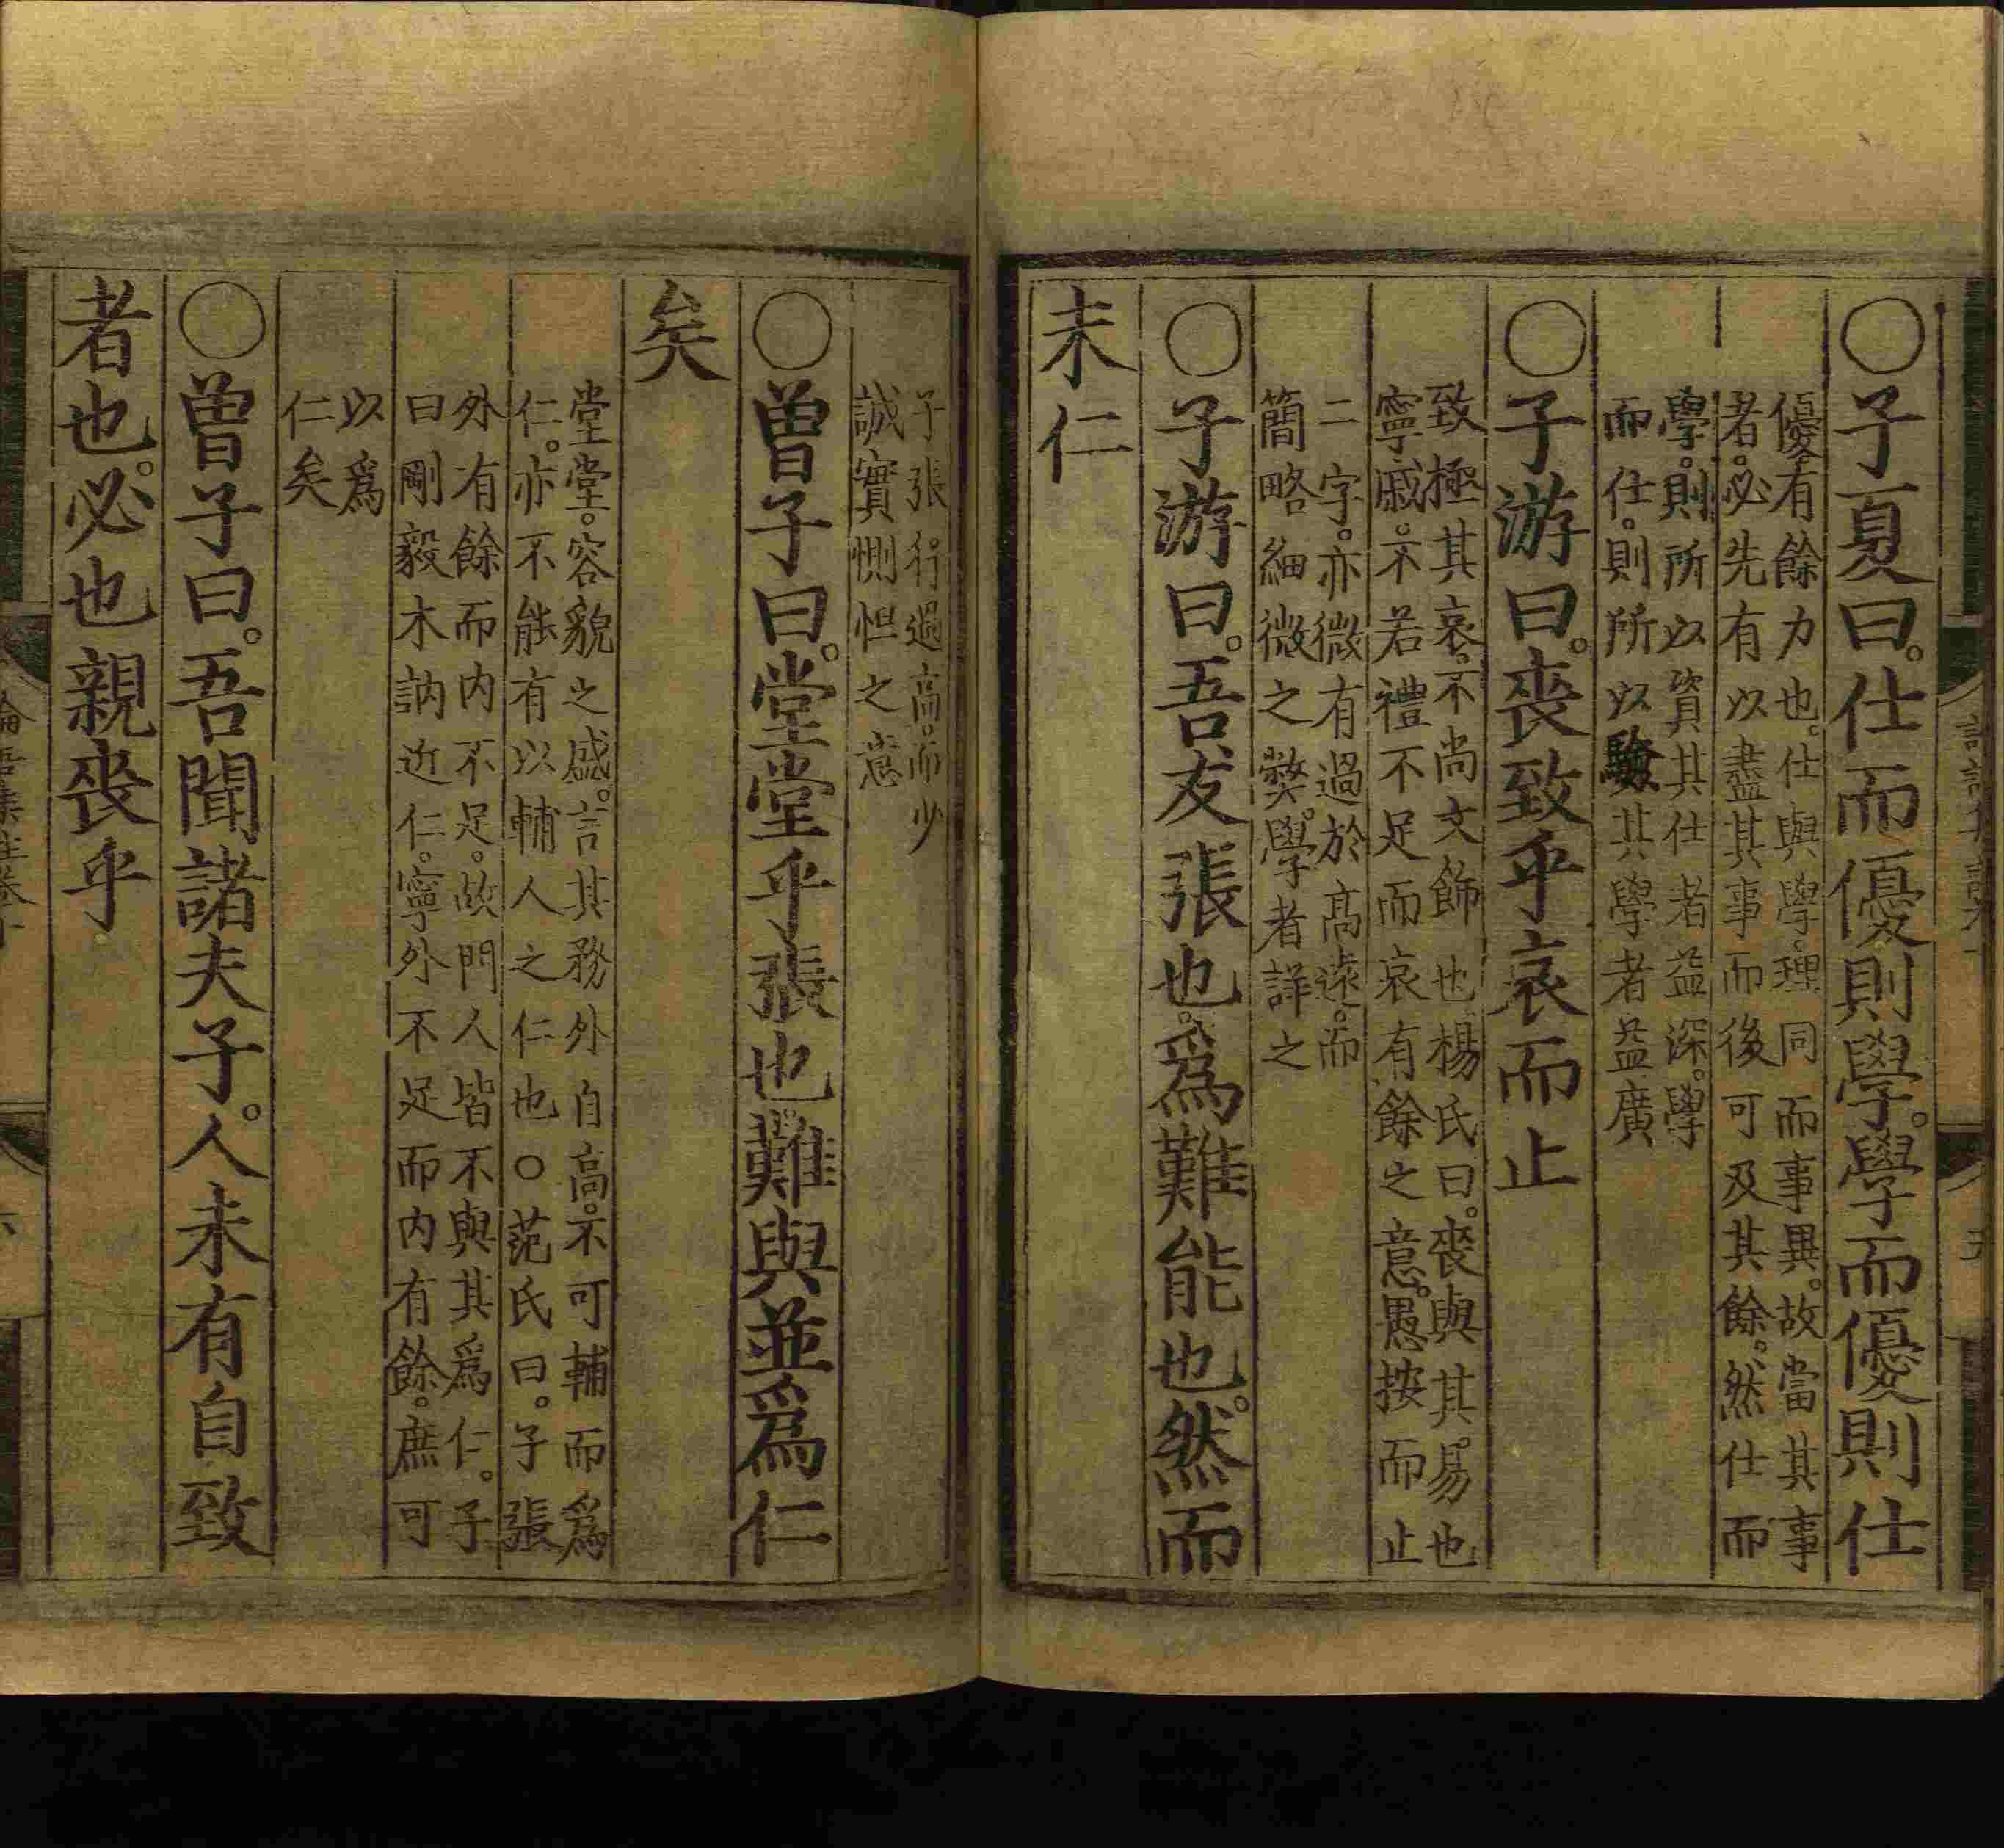 ○子夏曰。仕而優則學。學而優則仕
優有餘力也。仕與學。理同而事異。故當其事
者。必先有以盡其事而後可及其餘。然仕而
學。則所以資其仕者益深。學
而仕。則所以驗其學者益廣
○子游曰。喪致乎哀而止
致極其哀。不尚文飾也楊氏曰。喪與其易也
寧戚。不若禮不足而哀有餘之意。愚按而止
二字。亦微有過於高遠。而
簡略細微之弊。學者詳之
○子游曰。吾友張也。爲難能也。然而
未仁
子張行過高。而少
誠實惻怛之意
○曾子曰。堂堂乎張也難與並爲仁
矣
堂堂。容貌之盛。言其務外自高。不可輔而爲
仁。亦不能有以輔人之仁也○范氏曰。子張
外有餘而內不足。故門人皆不與其爲仁。子
曰剛毅木訥近仁。寧外不足而內有餘。庶可
以爲
仁矣
○曾子曰。吾聞諸夫子。人未有自致
者也。必也親喪乎